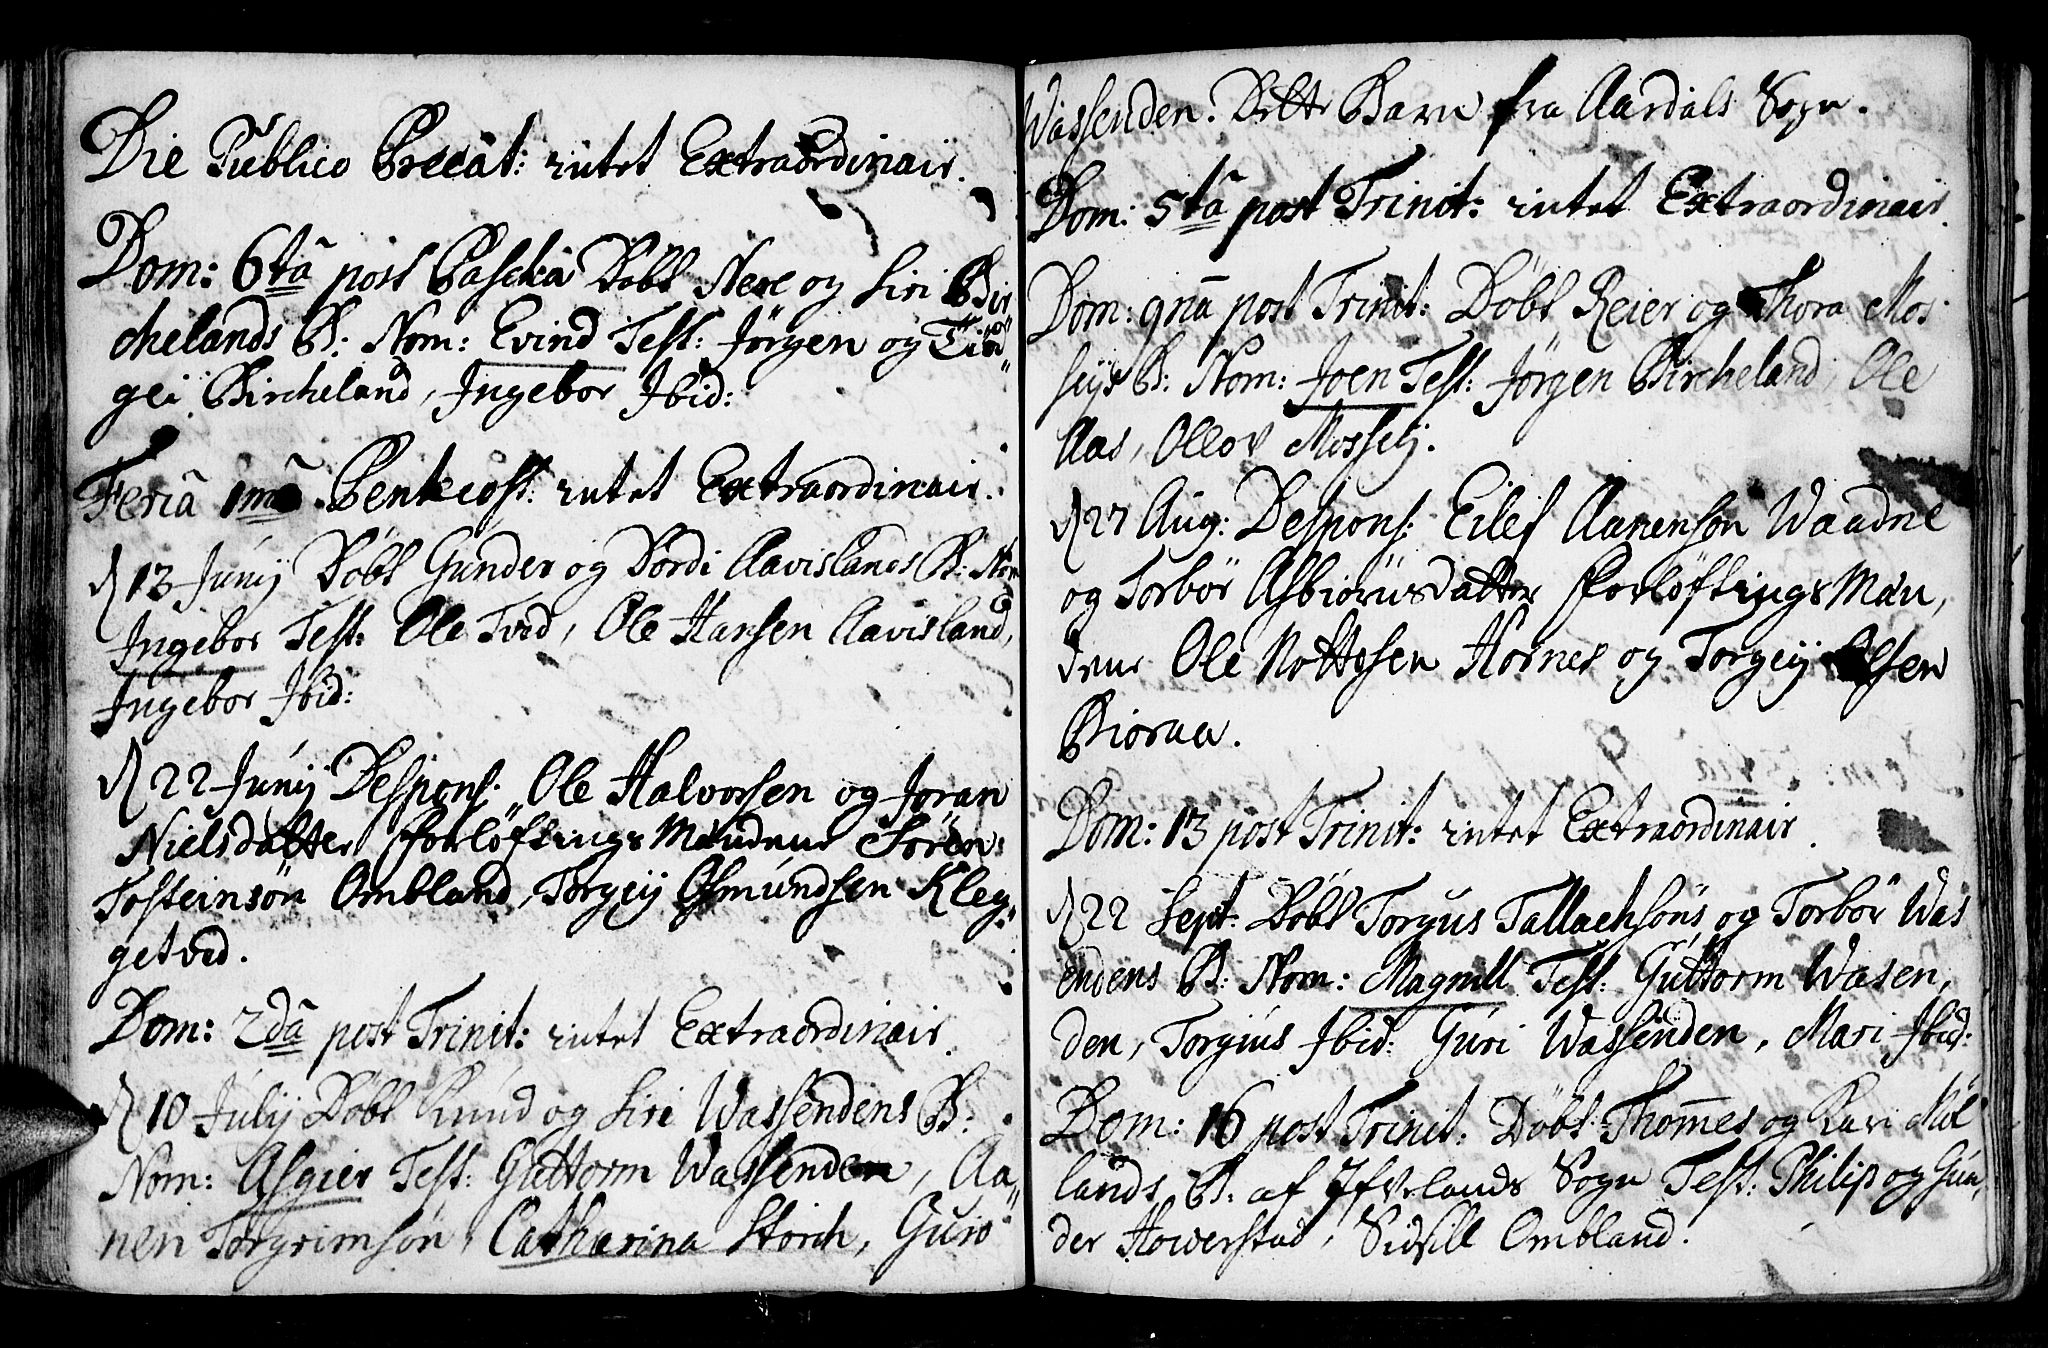 Die Publico Precat: intet Extraordinair.
Dom: 6tâ post Pascha Döbt Nere og Siri Bir
chelands B: Nom: Evind Test: Jörgen og Tiör
gei Bircheland, Ingebor Ibid:
Feriâ 1mâ Pentecost: intet Extraordinair.
d 13 Junij Döbt Gunder og Dordi Aavislands B: Nom
Ingebor Test: Ole Tved, Ole Hansen Aavisland,
Ingebor Ibid:
d 22 Junij Despons: Ole Halvorsen og Joran
Nielsdatter Forlöftings Mændene Sören
Tosteinsön Ombland, Torgeij Osmundsen Kleg,
getved.
Dom: 2dâ post Trinit: intet Extraordinair.
d 10 Julij Döbt Knud og Siri Wassendens B:
Nom: Asgier Test: Guttorm Wassenden, Aa,
nen Torgrimsön, Catharina Storch, Guro
Wassenden. Dette Barn fra Aardals Sogn.
Dom: 5tâ post Trinit: intet Extraordinair.
Dom: 9nâ post Trinit: Döbt Reier og Thora Mos
seijs B: Nom: Joen Test: Jörgen Bircheland, Ole
Aas, Ollov Mosseij.
d 27 Aug: Despons: Eilef Aanensön Waadne
og Torbör Asbiörnsdatter Forlöftings Mæn,
dene Ole Nottesen Hornes og Torgeij Olsen
Bioraa.
Dom: 13 post Trinit: intet Extraordinair.
d 22 Sept: Döbt Torgus Tallachsöns og Torbör Was
endens B: Nom: Magnill Test: Guttorm Wasen,
den, Torgius Ibid: Guri Wassenden, Mari Ibid:
Dom: 16 post Trinit: Döbt Thom̄es og Kari Møl
lands B: af Ifvelands Sogn Test: Philip og Gun,
der Howerstad, Sidsill Ombland.